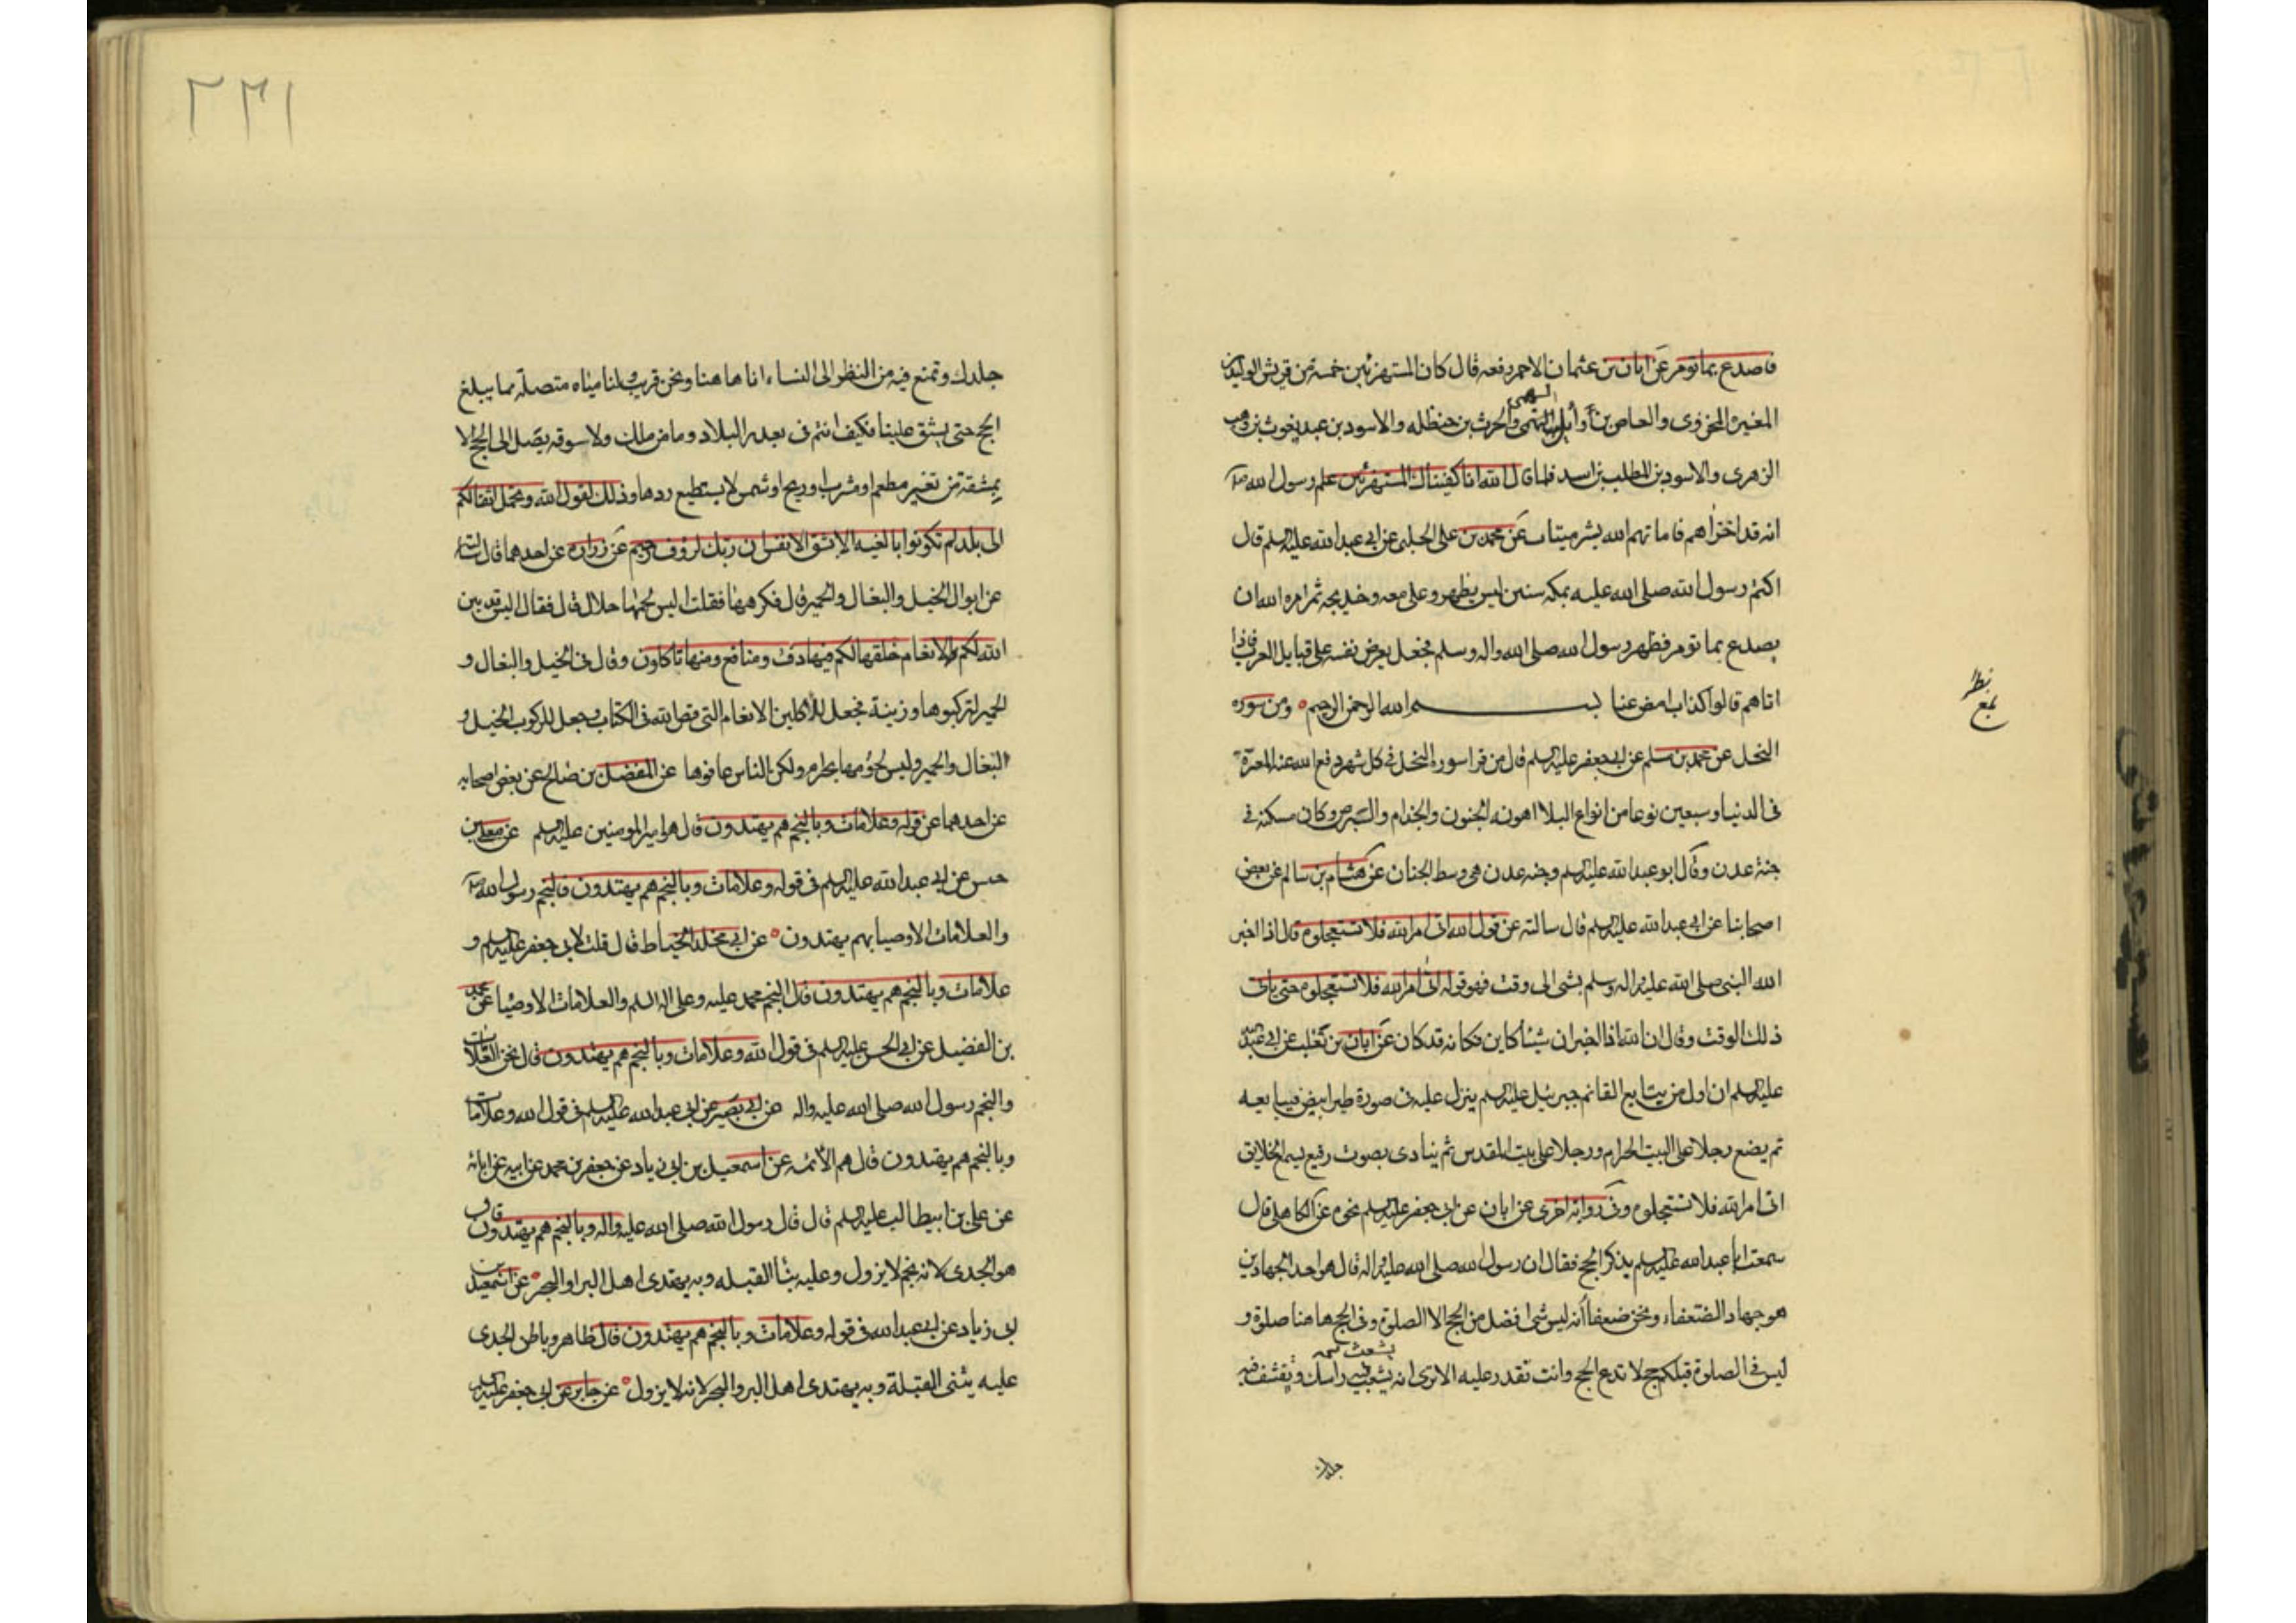 فاصدع بما تومر عن ابان بن عثمان الاحمر رفعه قال كان المستهزئين خمسة من قريش الوليد بن
المغيرة المخزومى والعاص بن وائل السهمى والحرث بن حنظله والاسود بن عبد يغوث بن وهب
الزهرى والاسود بن المطلب بن اسد فلما قال الله انا كفيناك المستهزئين علم رسول الله ص
انه قد اخزاهم فاماتهم الله بشر ميتات عن محمد بن على الحلبى عن ابى عبد الله عليه السلم قال
اكتتم رسول الله صلى الله عليه بمكه سنين ليس يظهر وعلى معه وخديجه ثم امره الله ان
يصدع بما تومر فظهر رسول الله صلى الله واله وسلم فجعل يعرض نفسه على قبايل العرب فاذا
اتاهم قالوا كذاب امض عنا بسم الله الرحمن الرحيم ومن سورة
النحل عن محمد بن مسلم عن ابى جعفر عليه السلم قال من قرا سورة النحل فى كل شهر دفع الله عنه المعرة
فى الدنيا وسبعين نوعا من انواع البلاا اهونه الجنون والجذام والبرص وكان مسكنه فى
جنة عدن وقال ابو عبد الله عليه السلم وجنه عدن هى وسط الجنان عن هشام بن سالم عن بعض
اصحابنا عن ابى عبد الله عليه السلم قال سالته عن قول الله اتى امر الله فلا تستعجلوه قال اذا اخبر
الله النبى صلى الله عليه واله وسلم بشى الى وقت فهو قوله اتى امر الله فلا تستعجلوه حتى ياتى
ذلك الوقت وقال ان الله اذا اخبر ان شيئا كاين فكانه قد كان عن ابان بن تغلب عن ابى عبد الله
عليه السلم ان اول من يبايع القائم جبرئيل عليه السلم ينزل عليه فى صورة طير ابيض فيبايعه
ثم يضع رجلا على البيت الحرام ورجلا على بيت المقدس ثم ينادى بصوت رفيع يسمع الخلايق
اتى امر الله فلا تستعجلوه وفى رواية اخرى عن ابان عن ابى جعفر عليه السلم نحوه عن الكاهلى قال
سمعت ابا عبد الله عليه السلم يذكر الحج فقال ان رسول الله صلى الله عليه واله قال هو احد الجهادين
هو جهاد الضعفاء ونحن ضعفا أنه ليس شى افضل من الحج الا الصلوة وفى الحج هاهنا صلوة و
ليس فى الصلوة قبلكم حج لا تدع الحج وانت تقدر عليه الا ترى انه يشعث فيه راسك ويقشف فيه
جلدك
نظر
بمع
٢٣١
جلدك وتمنع فيه من النظر الى النساء انا هاهنا ونحن قريب ولنا مياه متصلة مما يبلغ
الحج حتى يشق علينا فكيف انتم فى بعد البلاد وما من ملك ولا سوقه يصل الى الحج الا
بمشقة من تغيير مطعم او مشرب او ريح او شمس لا يستطيع ردها وذلك لقول الله وتحمل اثقالكم
الى بلد لم تكونوا بالغيه الا بشق الانفس ان ربك لرؤف رحيم عن زرارة عن احدهما قال سالته
عن ابوال الخيل والبغال والحمير قال فكرهها فقلت اليس لحمها حلال قال فقال اليس قد بين
الله لكم والانعام خلقها لكم فيها دفء ومنافع ومنها تاكلون وقال فى الخيل والبغال و
الحمير لتركبوها وزينة فجعل للاكلين الانعام التى قص الله فى الكتاب وجعل للركوب الخيل و
البغال والحمير وليس لحومها بحرام ولكن الناس عافوها عن المفضل بن صالح عن بعض اصحابه
عن احدهما عن قوله وعلامات وبالنجم هم يهتدون قال هو امير المومنين عليه السلم عن معلى بن
خنيس عن ابى عبد الله عليه السلم فى قوله وعلامات وبالنجم هم يهتدون فالنجم رسول الله ص
والعلامات الاوصيا بهم يهتدون عن ابى مخلد الخياط قال قلت لابى جعفر عليه السلم و
علامات وبالنجم هم يهتدون قال النجم محمد عليه وعلى اله السلم والعلامات الاوصيا عن محمد
بن الفضيل عن ابى الحسن عليه السلم فى قول الله وعلامات وبالنجم هم يهتدون قال نحن العلامات
والنجم رسول الله صلى الله عليه واله عن ابى بصير عن ابى عبد الله عليه السلم فى قول الله وعلامات
وبالنجم هم يهتدون قال هم الأئمه عن اسمعيل بن ابى زياد عن جعفر بن محمد عن ابيه عن ابائه
عن على بن ابيطالب عليه السلم قال قال رسول الله صلى الله عليه واله وبالنجم هم يهتدون قال
هو الجدى لانه نجم لا يزول وعليه بنا القبله وبه يهتدى اهل البر والبحر عن اسمعيل بن
ابى زياد عن ابى عبد الله فى قوله وعلامات وبالنجم هم يهتدون قال ظاهر وباطن الجدى
عليه يثنى القبلة وبه يهتدى اهل البر والبحر لانه لا يزول عن جابر عن ابى جعفر عليه السلم